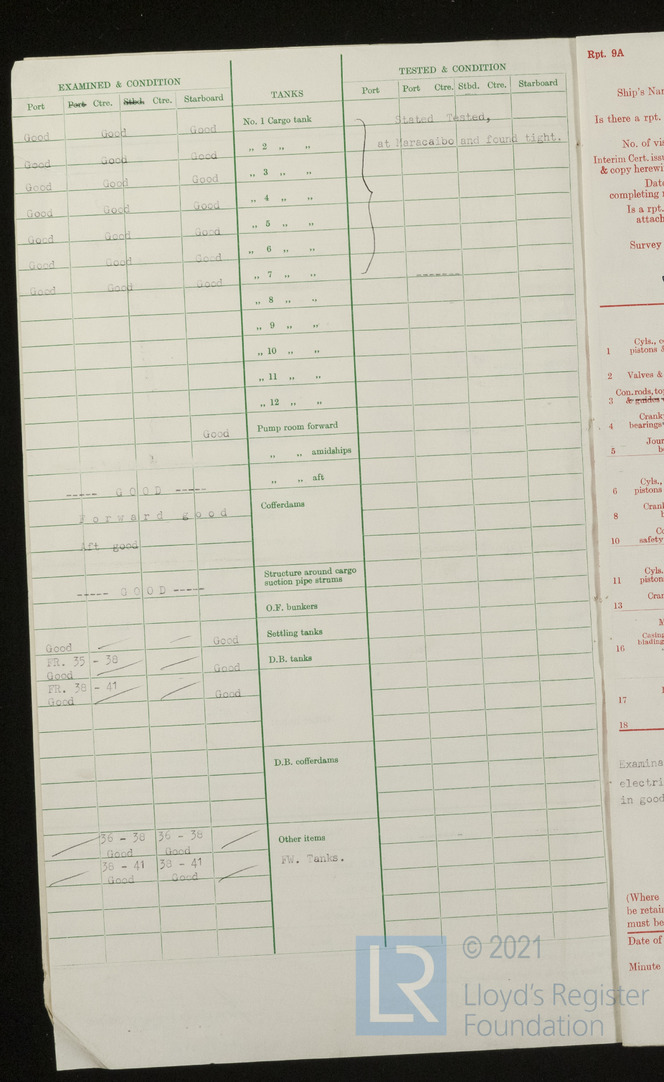 EXAMINED & CONDITION
TANKS
TESTED & CONDITION
Port Port Ctre. Stbd. Ctre. Starboard
Port Port Ctre. Stbd. Ctre. Starboard
Good Good Good No. 1 Cargo tank Stated Tested,
Good Good Good ,, 2 ,, ,, at Maracaibo and found tight.
Good Good Good ,, 3 ,, ,,
Good Good Good ,, 4 ,, ,,
Good Good Good ,, 5 ,, ,,
Good Good Good ,, 6 ,, ,,
Good Good Good ,, 7 ,, ,, -------
,, 8 ,, ,,
,, 9 ,, ,,
,, 10 ,, ,,
,, 11 ,, ,,
,, 12 ,, ,,
Good Pump room forward
,, ,, amidships
,, ,, aft
----- G O O D -----
Cofferdams
F o r w a r d g o o d
Aft good
Structure around cargo
suction pipe strums
----- G O O D -----
O.F. bunkers
Settling tanks
Good Good
D.B. tanks
FR. 35 - 38
Good Good
FR. 38 - 41
Good Good
D.B. cofferdams
Other items
36 - 38 36 - 38
Good Good
FW. Tanks.
38 - 41 38 - 41
Good Good
Rpt. 9A
Ship's Nam
Is there a rpt.
No. of vis
Interim Cert. issu
& copy herewi
Date
completing r
Is a rpt.
attach
Survey
Cyls., c
1 pistons &
2 Valves &
Con. rods, top
3 & guides
Crank
4 bearings
Jour
5 b
Cyls.,
6 pistons
Crank
8 b
Co
10 safety
Cyls.
11 piston
Cran
13
M
Casing
blading
16
17
18
Examina
electri
in good
(Where
be retain
must be
Date of
Minute
LR
© 2021
Lloyd's Register
Foundation